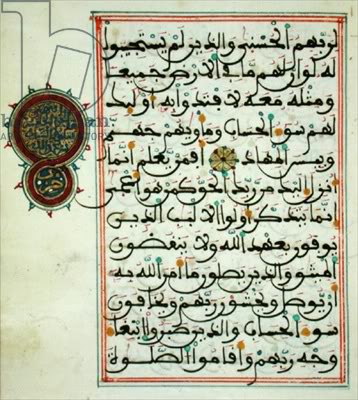 لربهم الحسنى والذين لم يستجيبوا
له لو ان لهم ما في الارض جميعا
ومثله معه لافتدوا به اوليك
لهم سوء الحساب وماويهم جهنم
وبيس المهاد افمن يعلم انما
انزل اليك من ربك الحق كمن هو اعمى
انما يتذكر اولوا الالبب الذين
يوفون بعهد الله ولا ينقضون
الميثق والذين يصلون ما امر الله به
ان يوصل ويخشون ربهم ويخافون
سوء الحساب والذين صبروا ابتغاء
وجه ربهم واقاموا الصلوة